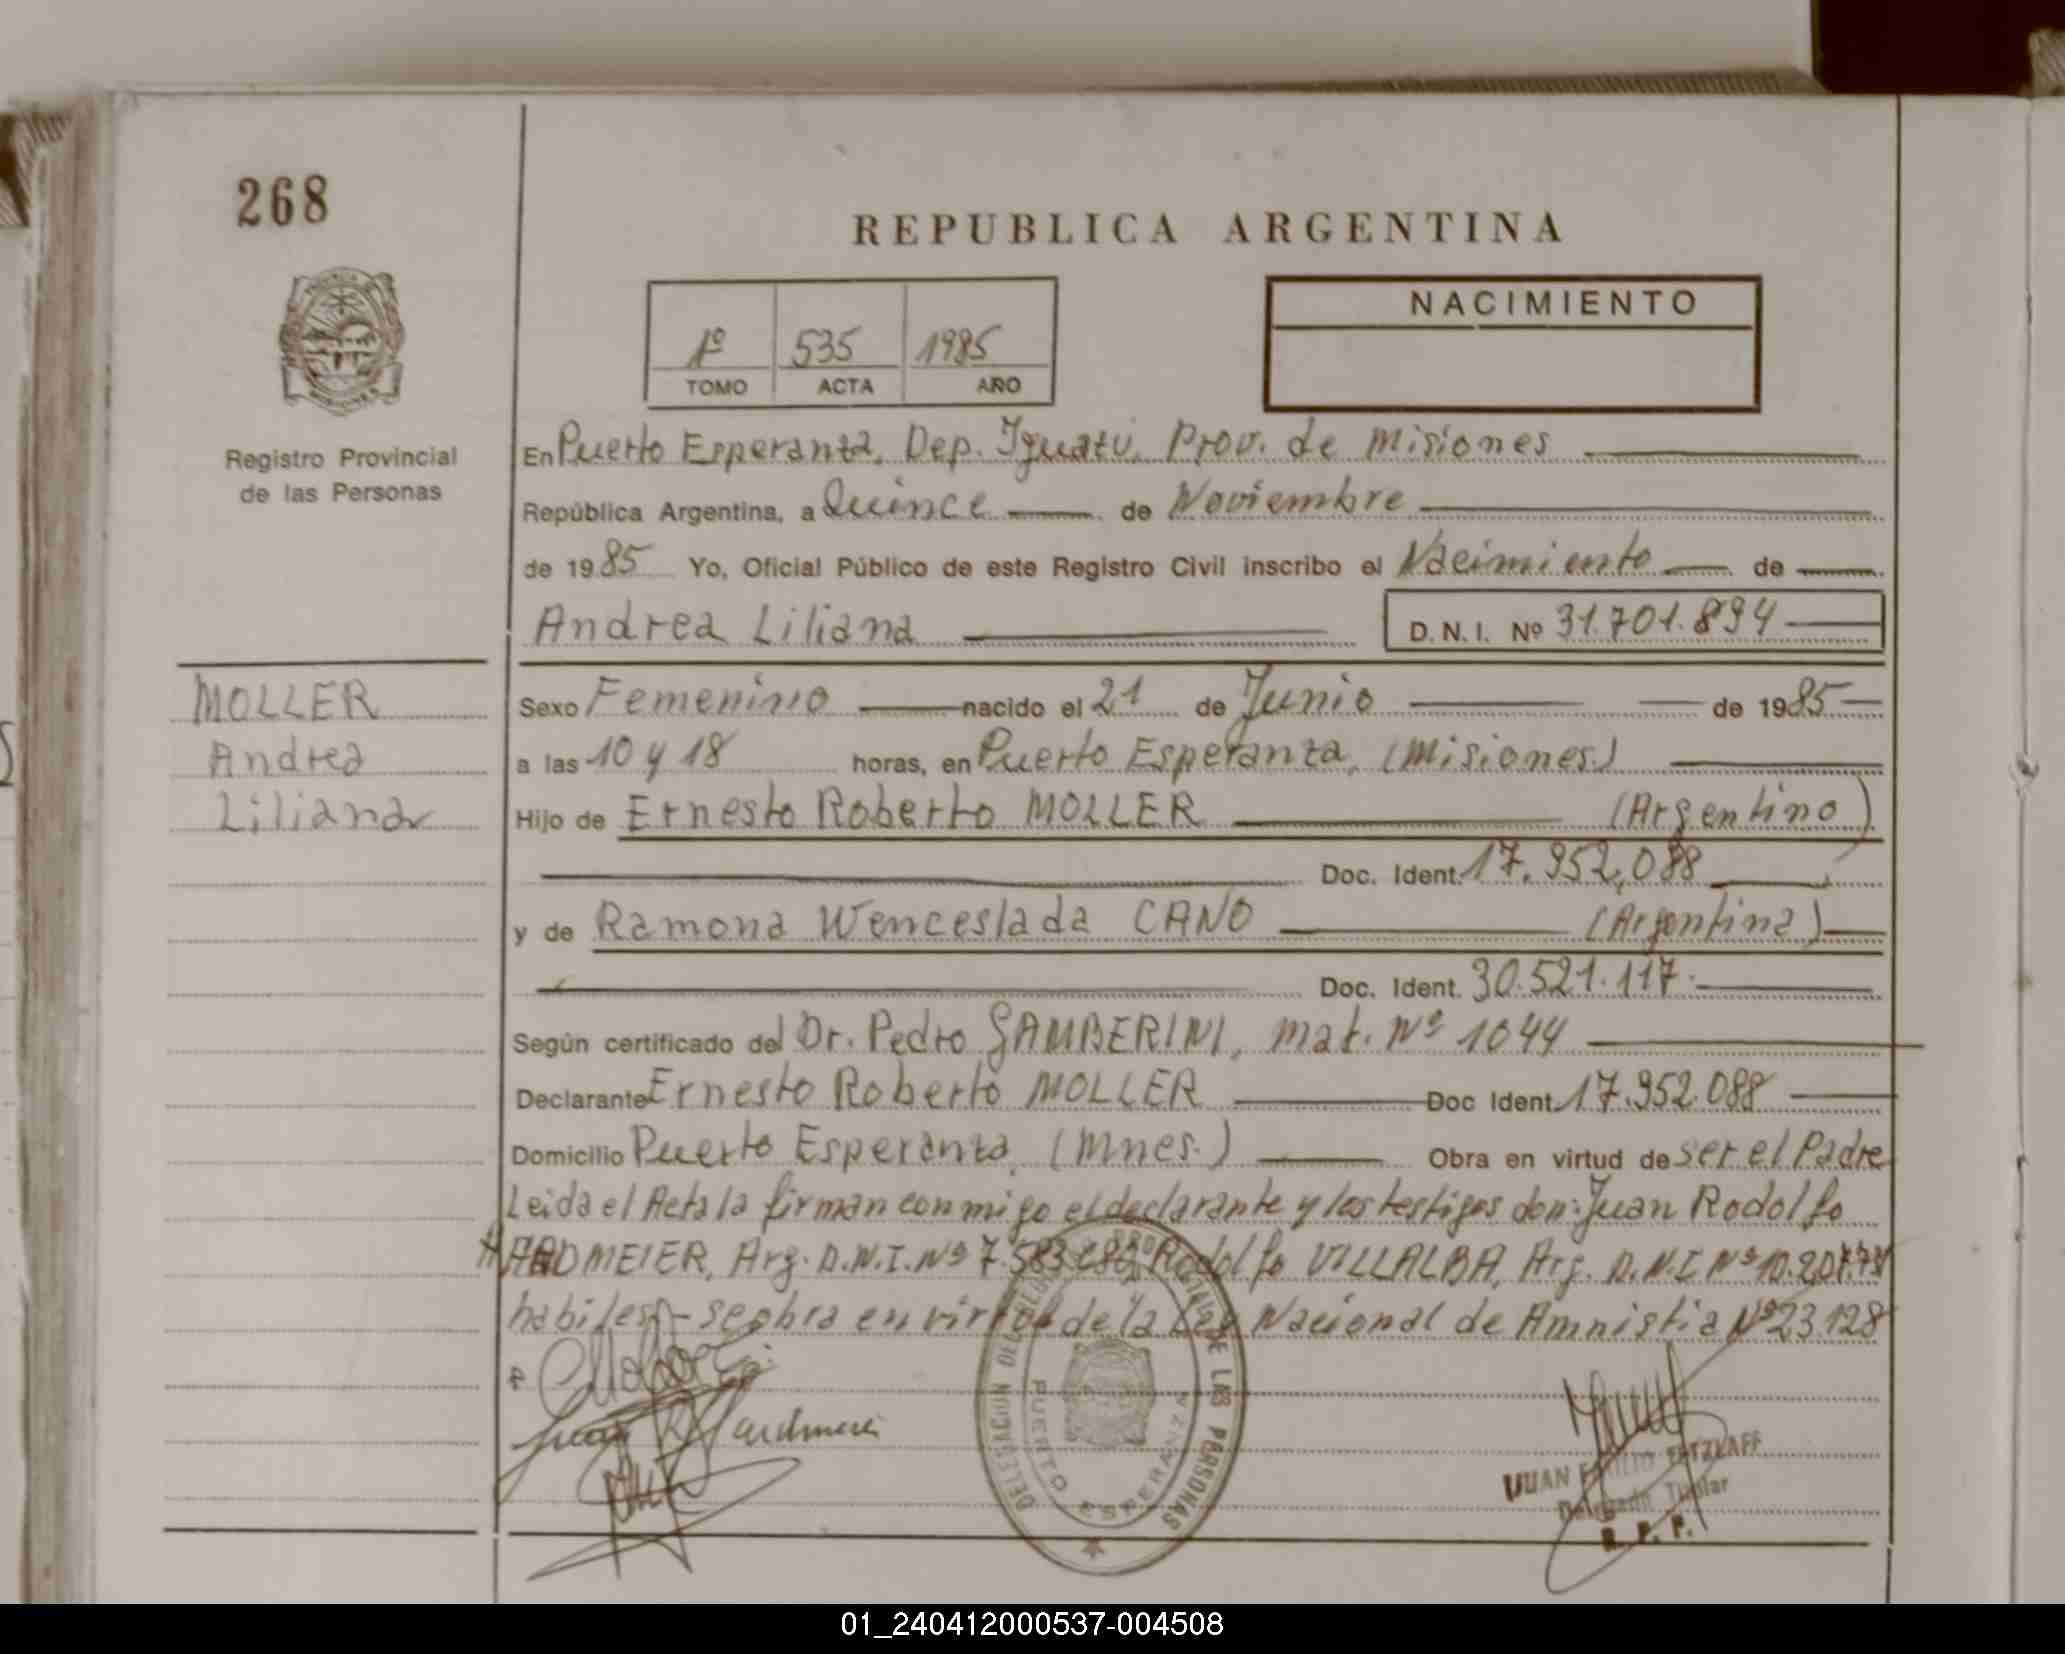 268
REPUBLICA ARGENTINA
1º 535 1985
TOMO ACTA AÑO
NACIMIENTO
Registro Provincial
de las Personas
En Puerto Esperanza, Dep. Iguazú, Prov. de Misiones
República Argentina, a Quince de Noviembre
de 1985 Yo, Oficial Público de este Registro Civil inscribo el Nacimiento de
Andrea Liliana D.N.I. Nº 31.701.894
MOLLER
Andrea
Liliana
Sexo Femenino nacido el 21 de Junio de 1985
a las 10 y 18 horas, en Puerto Esperanza, (Misiones)
Hijo de Ernesto Roberto MOLLER (Argentino)
Doc. Ident. 17.952,088
y de Ramona Wenceslada CANO (Argentina)
Doc. Ident. 30.521.117.
Según certificado del Dr. Pedro GAMBERINI, mat. Nº 1044
Declarante Ernesto Roberto MOLLER Doc Ident. 17.952.088
Domicilio Puerto Esperanza, (Mnes.) Obra en virtud de ser el Padre
Leida el Acta la firman conmigo el declarante y los testigos don: Juan Rodolfo
HARDMEIER, Arg. D.N.I. Nº Rodolfo VILLALBA, Arg. D.N.I Nº
habiles - se obra en virtud de la Ley Nacional de Amnistia Nº 23.128
DELEGACION DEL REGISTRO PROVINCIAL DE LAS PERSONAS
PUERTO ESPERANZA
JUAN EMILIO
Delegado Titular
R. P. P.
01_240412000537-004508